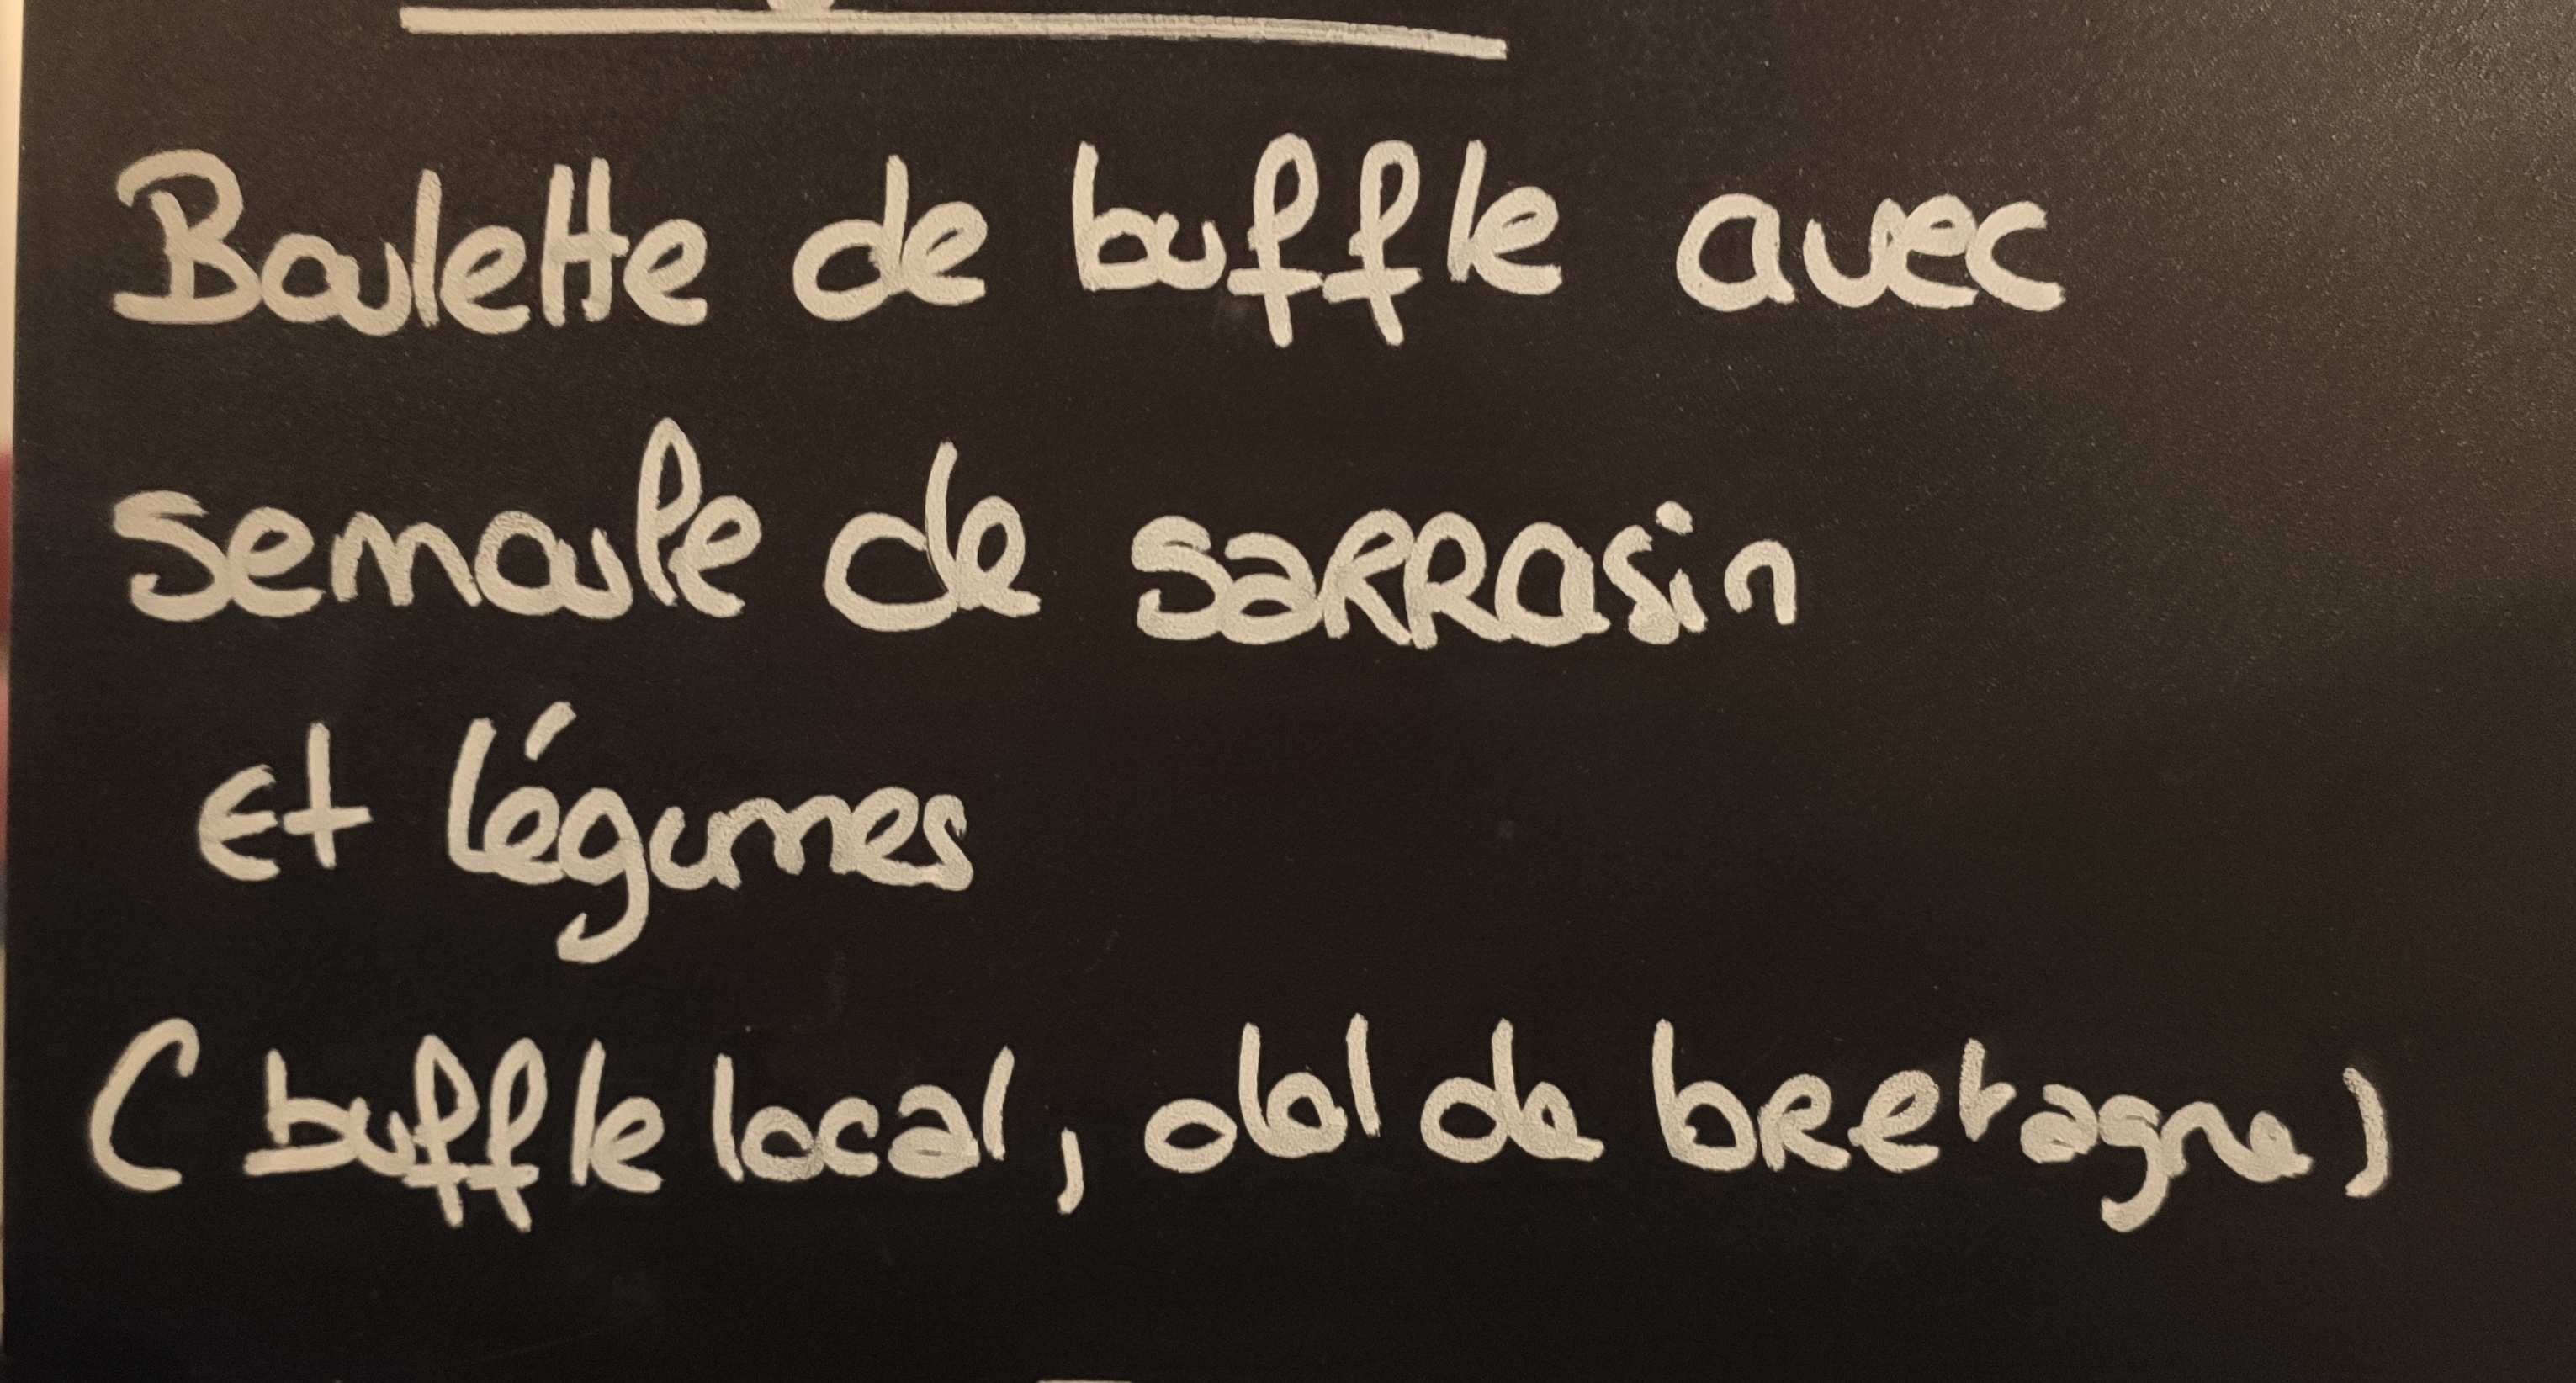 Boulette de buffle avec
semoule de sarrasin
et légumes
(buffle local, dol de bretagne)